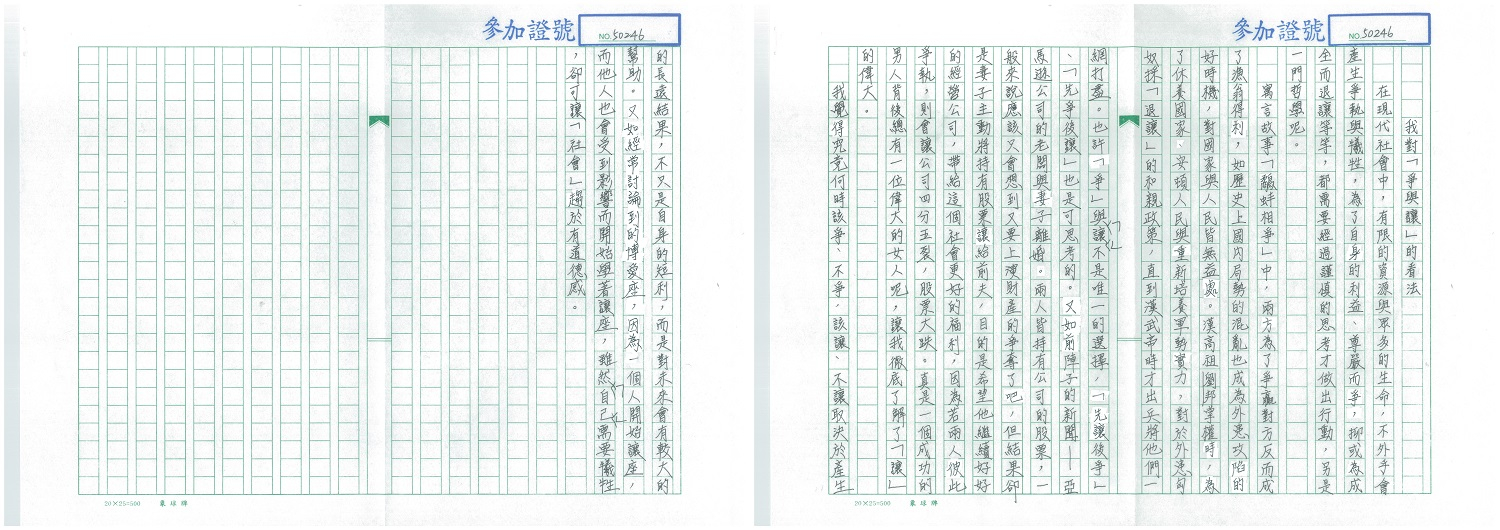 參加證號
NO. 50246
我對「爭與讓」的看法
在現代社會中，有限的資源與眾多的生命，不外乎會
產生爭執與犧牲，為了自身的利益、尊嚴而爭，抑或為成
全而退讓等等，都需要經過謹慎的思考才做出行動，另是
一門哲學呢。
寓言故事「鷸蚌相爭」中，兩方為了爭贏對方反而成
了漁翁得利，如歷史上國內局勢的混亂也成為外患攻陷的
好時機，對國家與人民皆無益處。漢高祖劉邦掌權時，為
了休養國家、安頓人民與重新培養軍勢實力，對於外患匈
奴採「退讓」的和親政策，直到漢武帝時才出兵將他們一
網打盡。也許「爭」與讓不是唯一的選擇，「先讓後爭」
、「先爭後讓」也是可思考的。又如前陣子的新聞——亞
馬遜公司的老闆與妻子離婚。兩人皆持有公司的股票，一
般來說應該又會想到又要上演財產的爭奪了吧，但結果卻
是妻子主動將持有股票讓給前夫，目的是希望他繼續好好
的經營公司，帶給這個社會更好的福利，因為若兩人彼此
爭執，則會讓公司四分五裂，股票大跌。真是一個成功的
男人背後總有一位偉大的女人呢，讓我徹底了解了「讓」
的偉大。
我覺得究竟何時該爭、不爭，該讓、不讓取決於產生
20×25=500 象球牌
參加證號
NO. 50246
的長遠結果，不只是自身的短利，而是對未來會有較大的
幫助。又如經常討論到的博愛座，因為一個人開始讓座，
而他人也會受到影響而開始學著讓座，雖然自己需要犧牲
，卻可讓「社會」趨於有道德感。
20×25=500 象球牌